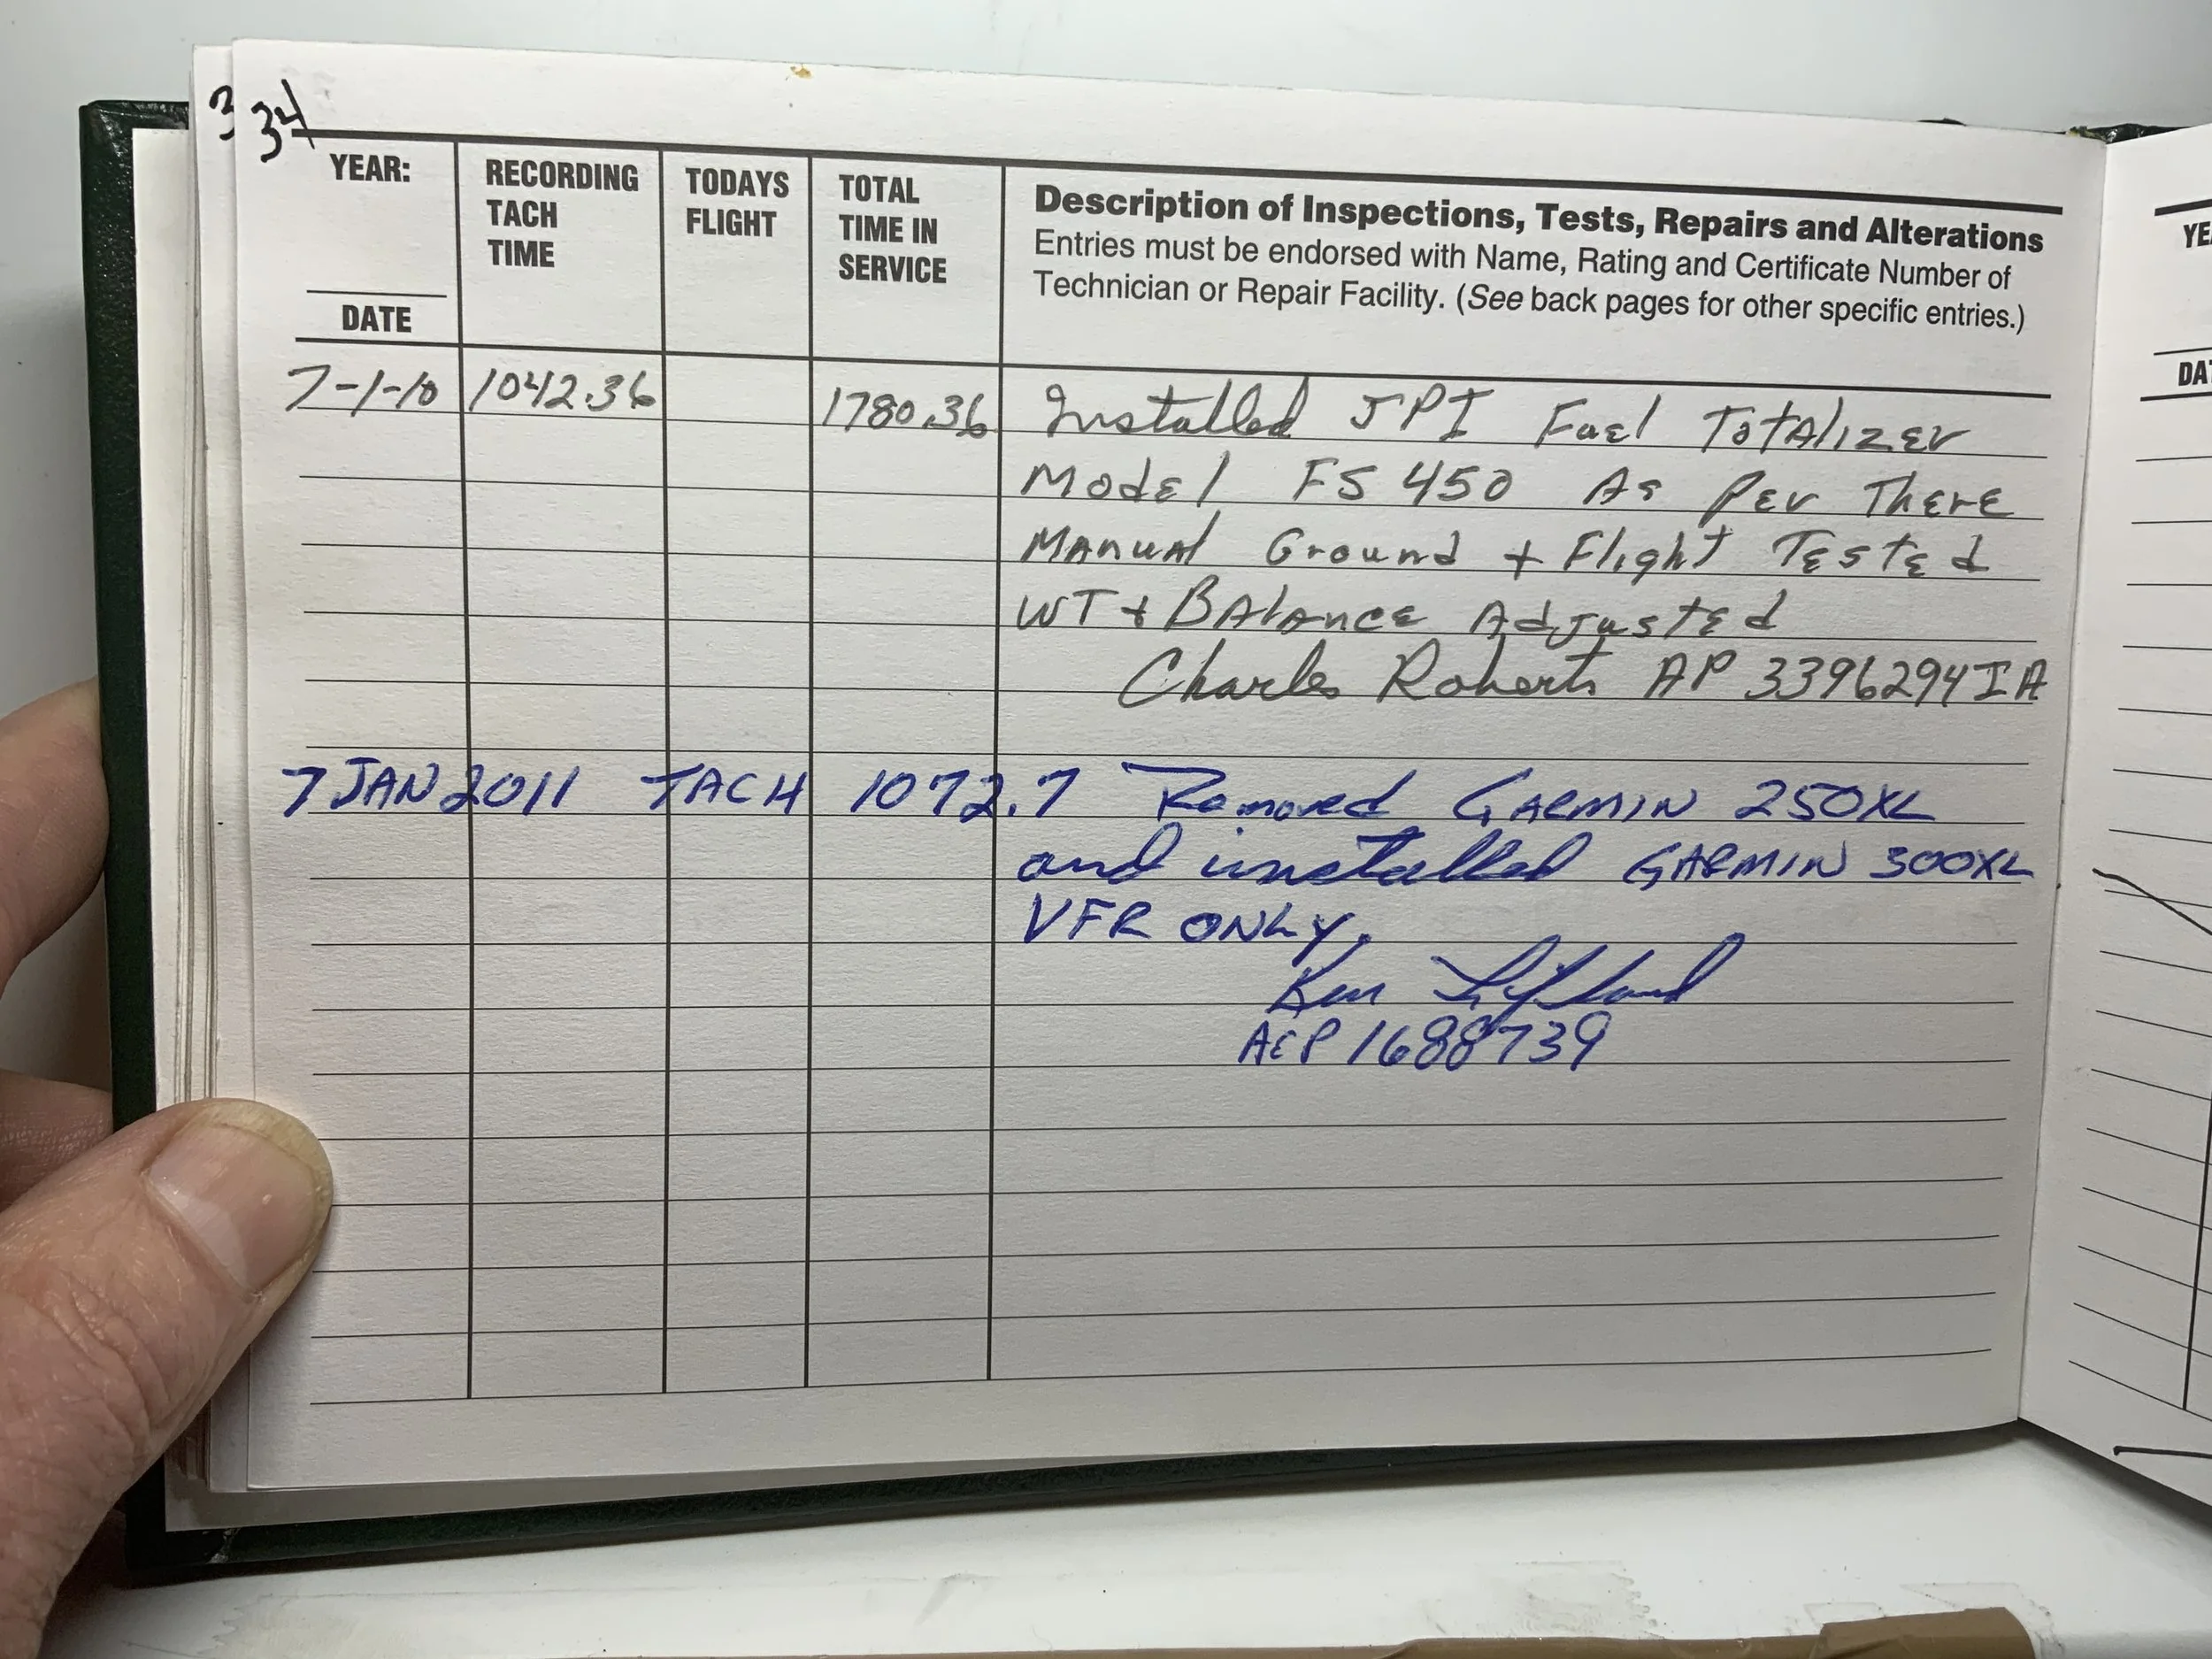 3
34
YEAR:
DATE
RECORDING
TACH
TIME
TODAYS
FLIGHT
TOTAL
TIME IN
SERVICE
Description of Inspections, Tests, Repairs and Alterations
Entries must be endorsed with Name, Rating and Certificate Number of
Technician or Repair Facility. (See back pages for other specific entries.)
7-1-10 1042.36 1780.36 Installed JPI Fuel Totalizer
Model FS 450 As Per There
Manual Ground + Flight Tested
WT + Balance Adjusted
Charles Roberts AP 3396294 IA
7 JAN 2011 TACH 1072.7 Removed GARMIN 250XL
and installed GARMIN 300XL
VFR ONLY.
Ken
A&P 1688739
YE
DA